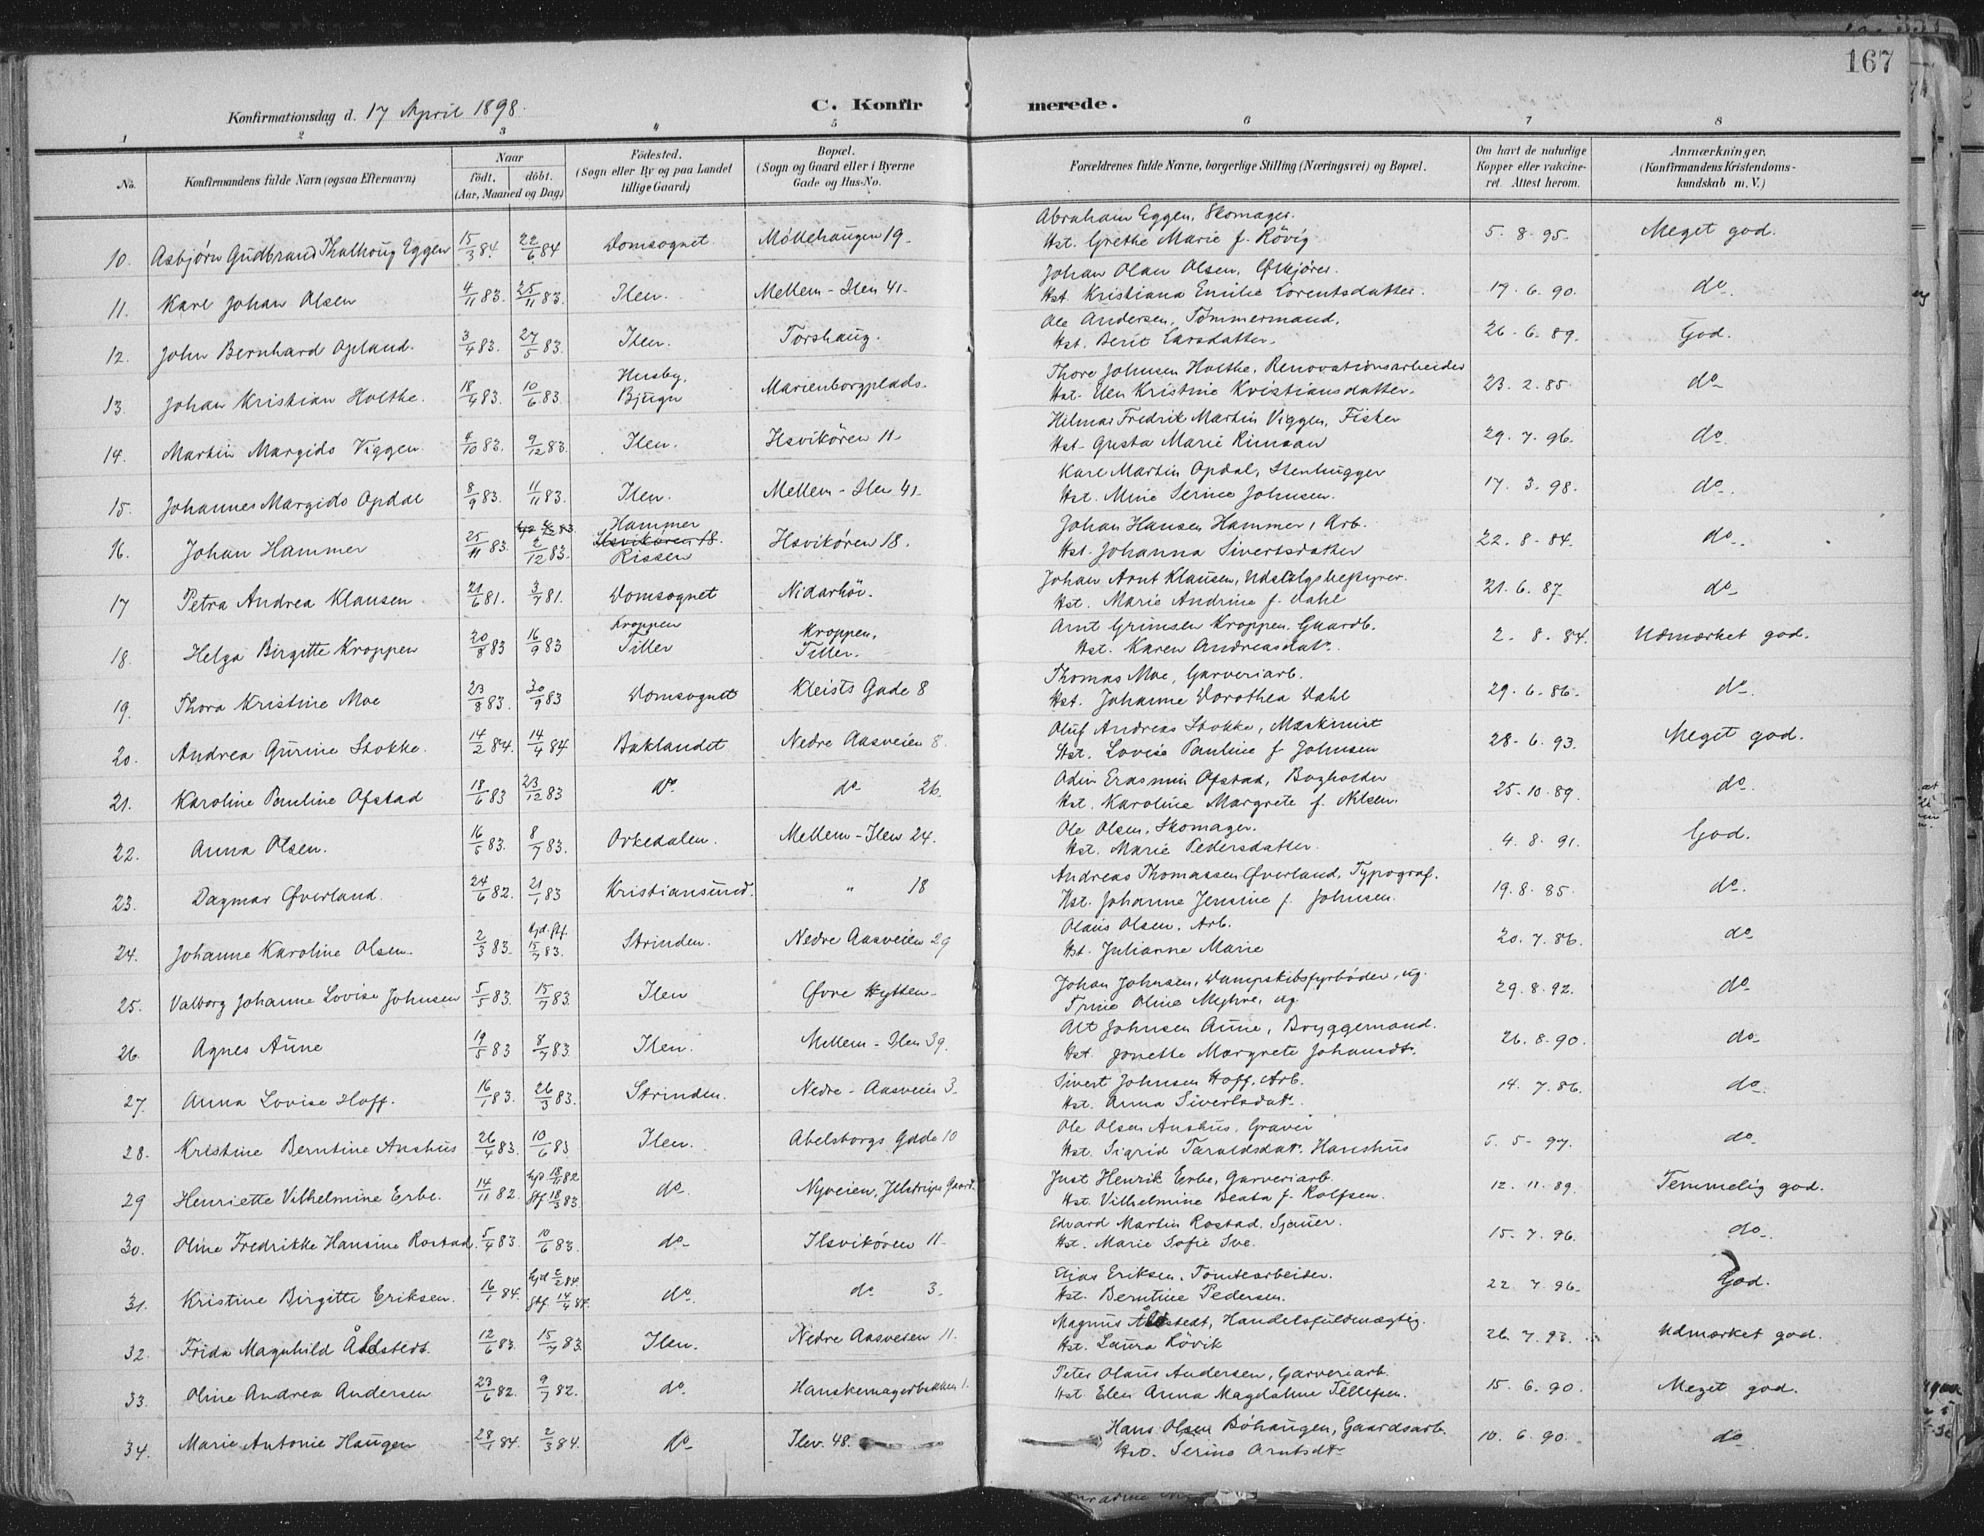 167
Konfirmationsdag d. 17 April 1898. C. Konfirmerede.
1 2 3 4 5 6 7 8
No. Konfirmandens fulde Navn (ogsaa Efternavn) Naar födt. döbt. (Aar, Maaned og Dag) Födested. (Sogn eller By og paa Landet tillige Gaard) Bopæl. (Sogn og Gaard eller i Byerne Gade og Hus-No. Forældrenes fulde Navne, borgerlige Stilling (Næringsvei) og Bopæl. Om havt de naturlige Kopper eller vakcineret. Attest herom. Anmærkninger, (Konfirmandens Kristendomskundskab m. V.)
10. Asbjørn Gudbrand Thalhoug Eggen 15/3 84. 22/6 84 Domsognet. Möllehaugen 19. Abraham Eggen, Skomager. Hst. Grethe Marie f. Rövig 5. 8. 95. Meget god.
11. Karl Johan Olsen 4/11 83. 25/11 83. Ilen. Mellem-Ilen 41. Johan Olau Olsen, Hst. Kristiana Emilie Lorentsdatter. 17. 6. 90. do.
12. John Bernhard Opland. 3/4 83. 27/5 83. Ilen. Torshaug. Ole Andersen, Tömmermand. Hst. Berit Larsdatter. 26. 6. 89. God.
13. Johan Kristian Holthe. 18/4 83. 10/6 83. Husby, Bjugn Marienborgplads. Thore Johnsen Holthe, Renovationsarbeider Hst. Elen Kristine Kristiansdatter. 23. 2. 85. do
14. Martin Margido Viggen. 8/10 83. 9/12 83. Ilen. Ilsvikören 11. Hilmar Fredrik Martin Viggen, Fisker Hst. Gusta Marie Rimsan 29. 7. 96. do.
15. Johannes Margido Opdal 8/9 83. 11/11 83. Ilen. Mellem-Ilen 41. Karl Martin Opdal, Stenhugger Hst. Mine Serine Johnsen. 17. 3. 98. do.
16. Johan Hammer 25/11 83. 2/12 83. Hammer Ilsvikören 18. Rissen Ilsvikören 18. Johan Hansen Hammer, Arb. Hst. Johanna Sivertsdatter 22. 8. 84. do.
17 Petra Andrea Klausen 21/6 81. 3/7 81. Domsognet Nidarhöi. Johan Arnt Klausen, Udsalgsbestyrer. Hst. Marie Andrine f. Dahl 21. 6. 87. do
18. Helga Birgitte Kroppen 20/8 83 16/9 83 Kroppen Tiller Kroppen, Tiller. Arnt Grimsen Kroppen. Gaardb. Hst. Karen Andreasdat. 2. 8. 84. Udmærket god.
19. Thora Kristine Moe 23/8 83. 30/9 83 Domsognet Kleists Gade 8 Thomas Moe, Garveriarb. Hst. Johanne Dorothea Dahl 29. 6. 86. do.
20. Andrea Gurine Stokke. 14/2 84. 14/4 84 Baklandet Nedre Aasveien 8. Oluf Andreas Stokke, Maskinist Hst. Lovise Pauline f. Johnsen 28. 6. 93. Meget god.
21. Karoline Pauline Ofstad 18/6 83 23/12 83 do do 26. Odin Erasmin Ofstad, Bogholder Hst. Karoline Margrete f. Nilsen. 25. 10. 89. do.
22. Anna Olsen. 16/5 83. 8/7 83. Orkedalen. Mellem-Ilen 24. Ole Olsen, Skomager. Hst. Marie Pedersdatter. 4. 8. 91. God.
23. Dagmar Øverland. 24/6 82. 21/1 83 Kristiansund. " 18 Andreas Thomassen Øverland, Typograf. Hst. Johanne Jensine f. Johnsen. 19. 8. 85. do.
24. Johanne Karoline Olsen. 2/3 83. hjd. stf. 15/7 83. Strinden. Nedre Aasveien 29 Olaus Olsen, Arb. Hst. Julianne Marie 20. 7. 86. do
25. Valborg Johanne Lovise Johnsen 5/5 83. 15/7 83. Ilen Øvre Hytten Johan Johnsen, Dampskibsfyrböder, ug. Trine Oline Myhre, ug. 29. 8. 92. do
26. Agnes Aune 19/5 83 8/7 83. Ilen. Mellem-Ilen 39. Alt Johnsen Aune, Bryggemand. Hst. Jonette Margrete Johansdt. 26. 8. 90. do
27. Anna Lovise Hoff. 16/1 83. 26/3 83. Strinden. Nedre-Aasveien 3. Sivert Johnsen Hoff, Arb. Hst. Anna Sivertsdat. 14. 7. 86. do
28. Kristine Berntine Aushus 26/4 83. 10/6 83 Ilen. Abelsborgs Gade 10 Ole Olsen Aushus, Graver Hst. Sigrid Taraldsdat. Hanshus 5. 5. 97. do
29 Henriette Vilhelmine Erbe. 14/11 82. hjd. 18/11 82 Stf. 18/3 83. do. Nyveien, Jelstrups Gaard. Just Henrik Erbe, Garveriarb. Hst. Vilhelmine Beata f. Rolfsen. 12. 11. 89. Temmelig god.
30. Oline Fredrikke Hansine Rostad. 5/4 83. 10/6 83. do Ilsvikören 11. Edvard Martin Rostad, Sjauer. Hst. Marie Sofie Sve. 15. 7. 96. do.
31. Kristine Birgitte Eriksen. 16/1 84. hjd 2/2 84. Stf. 14/4 84. do. do 3. Elias Eriksen, Tomtearbeider. Hst. Berntine Pedersen. 22. 7. 96. God.
32. Frida Magnhild Åbstedt. 12/6 83. 15/7 83. Ilen. Nedre Aasveien 11. Magnus Åbstedt, Handelsfuldmægtig. Hst. Laura Rövik 26. 7. 93. Udmærket god.
33. Oline Andrea Andersen 23/6 82. 9/7 82. do. Hanskemagerbakken 1. Peter Olaus Andersen, Garveriarb. Hst Elen Anna Magdalene Tellefsen. 15. 6. 90. Meget god.
34. Marie Antonie Haugen 28/1 84. 2/3 84. do Ilev. 48. Hans Olsen Böhaugen, Gaardsarb. Hst. Serine Arntsdt. 10. 6. 90. do